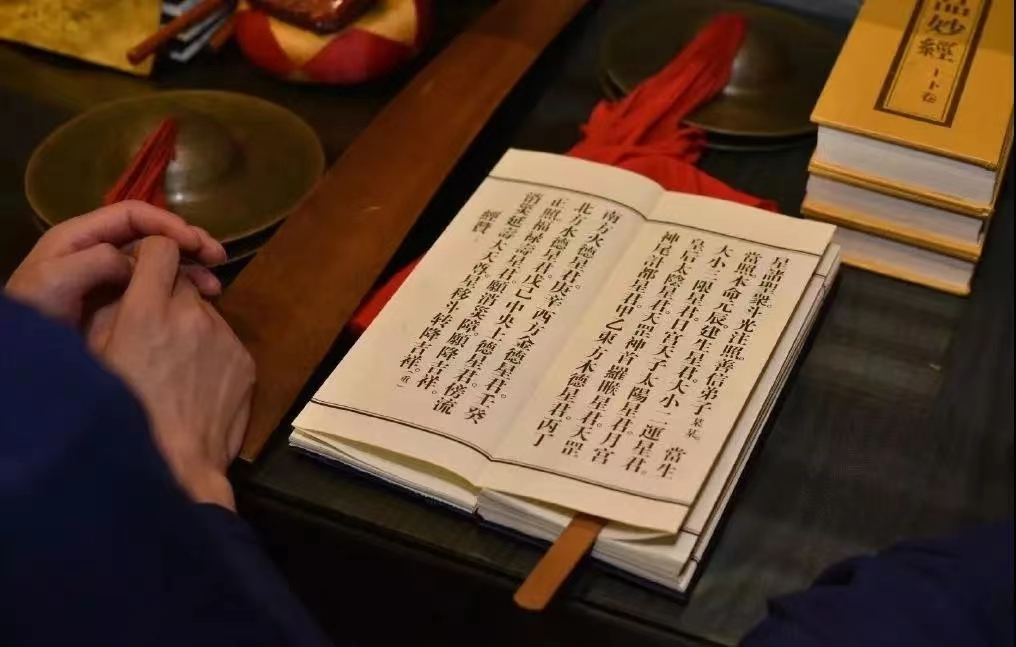 星諸聖衆。斗光注照。善信弟子某某。當生
當照本命元辰。建生星君。大小二運星君。
大小三限星君。日宮天子太陽星君。月宮
皇后太陰星君。天罡神首羅睺星君。天罡
神尾計都星君。甲乙東方木德星君。丙丁
南方火德星君。庚辛西方金德星君。壬癸
北方水德星君。戊己中央土德星君。傍流
正照。福禄壽星君。願消災障。願降吉祥。
消災延壽。大天尊。星移斗转降吉祥。（重）
經贊
妙經
上下卷